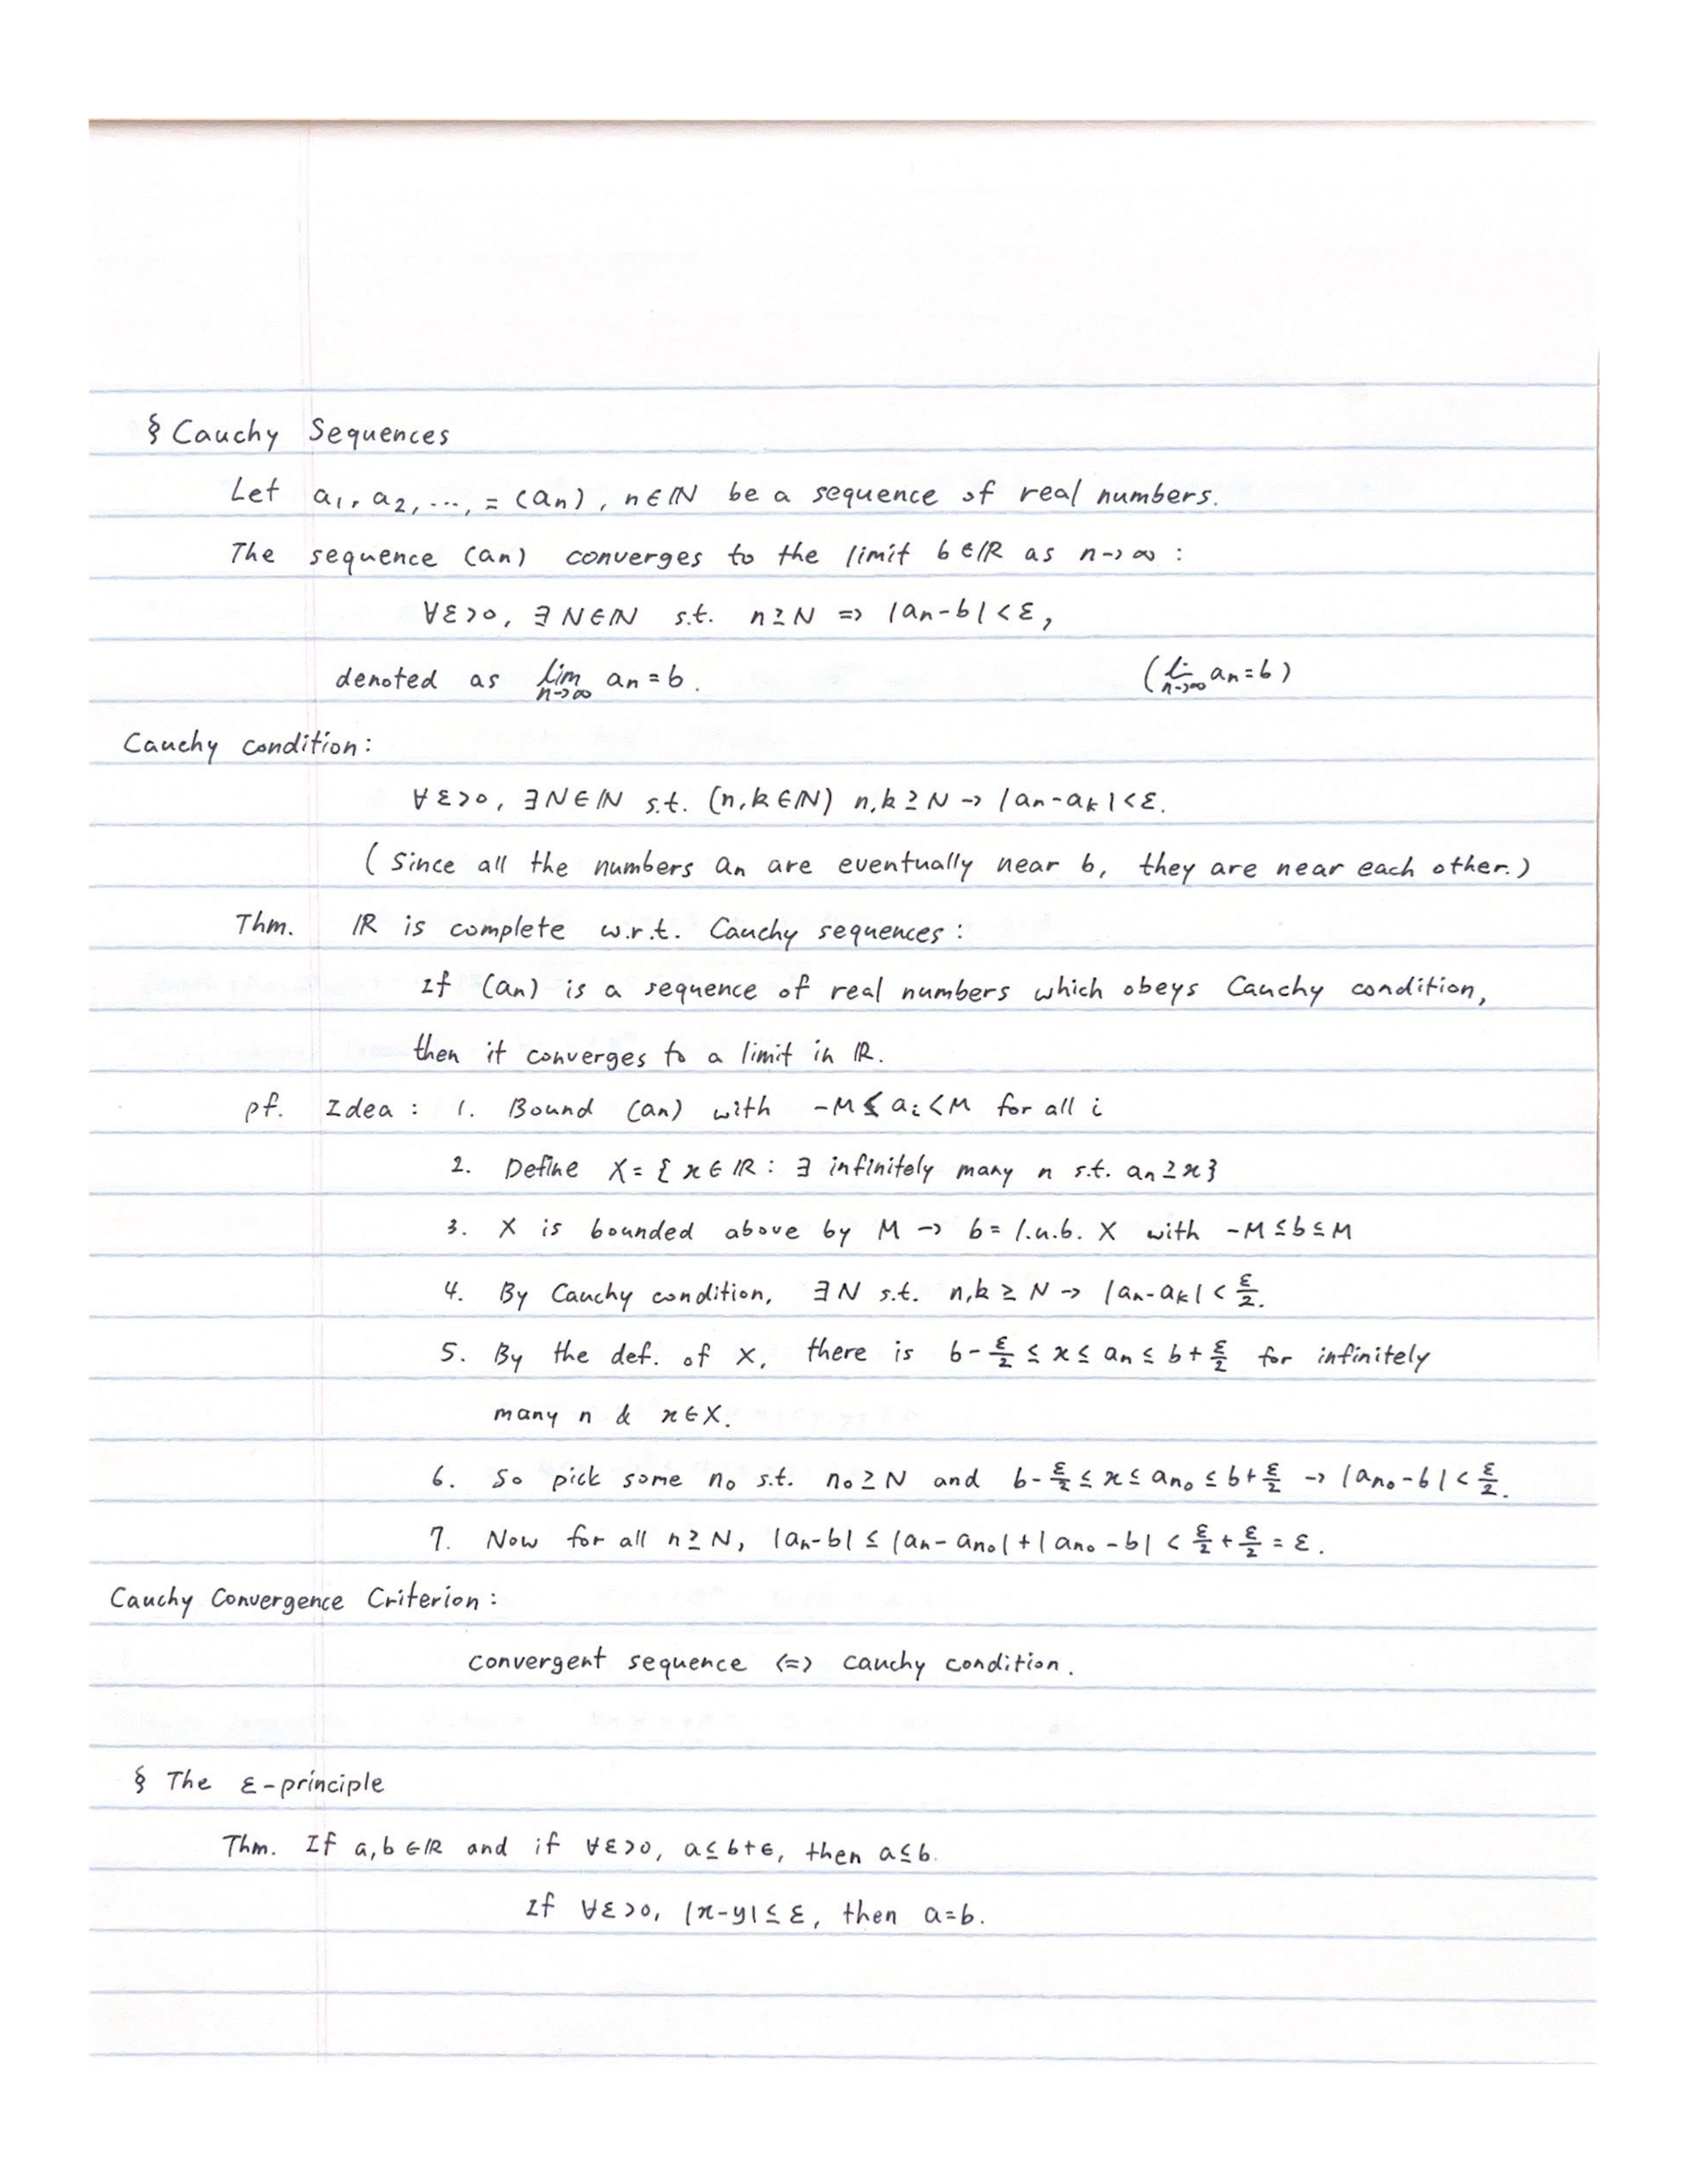 § Cauchy Sequences
Let a₁, a₂, ..., = (aₙ), n∈ℕ be a sequence of real numbers.
The sequence (aₙ) converges to the limit b∈ℝ as n→∞ :
∀ε>0, ∃N∈ℕ s.t. n≥N ⇒ |aₙ-b|<ε,
denoted as lim_{n→∞} aₙ=b. (lim_{n→∞} aₙ=b)
Cauchy condition:
∀ε>0, ∃N∈ℕ s.t. (n,k∈ℕ) n,k≥N → |aₙ-aₖ|<ε.
(Since all the numbers aₙ are eventually near b, they are near each other.)
Thm. ℝ is complete w.r.t. Cauchy sequences:
If (aₙ) is a sequence of real numbers which obeys Cauchy condition,
then it converges to a limit in ℝ.
pf. Idea: 1. Bound (aₙ) with -M≤aᵢ<M for all i
2. Define X={x∈ℝ: ∃ infinitely many n s.t. aₙ≥x}
3. X is bounded above by M → b= l.u.b. X with -M≤b≤M
4. By Cauchy condition, ∃N s.t. n,k≥N → |aₙ-aₖ|<ε/2.
5. By the def. of X, there is b-ε/2≤x≤aₙ≤b+ε/2 for infinitely
many n & x∈X.
6. So pick some n₀ s.t. n₀≥N and b-ε/2≤x≤aₙ₀≤b+ε/2 → |aₙ₀-b|<ε/2.
7. Now for all n≥N, |aₙ-b|≤|aₙ-aₙ₀|+|aₙ₀-b|<ε/2+ε/2=ε.
Cauchy Convergence Criterion:
convergent sequence <=> cauchy condition.
§ The ε-principle
Thm. If a,b∈ℝ and if ∀ε>0, a≤b+ϵ, then a≤b.
If ∀ε>0, |x-y|≤ε, then a=b.